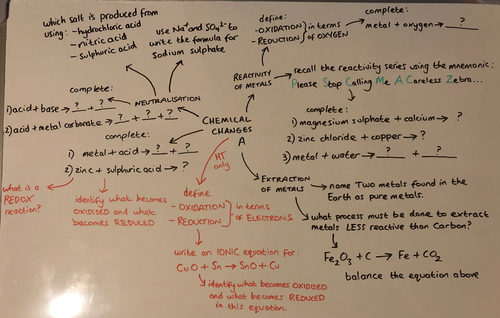 which salt is produced from
using: - hydrochloric acid
- nitric acid
- sulphuric acid
use Na⁺ and SO₄²⁻ to
write the formula for
Sodium sulphate
complete:
1) acid + base → ? + ?
2) acid + metal carbonate → ? + ? + ?
NEUTRALISATION
complete:
1) metal + acid → ? + ?
2) zinc + sulphuric acid → ?
what is a
REDOX
reaction?
identify what becomes
OXIDISED and what
becomes REDUCED
CHEMICAL
CHANGES
A
HT
only
define
- OXIDATION
- REDUCTION
in terms
of ELECTRONS
write an IONIC equation for:
CuO + Sn → SnO + Cu
identify what becomes OXIDISED
and what becomes REDUCED
in this equation.
define:
- OXIDATION
- REDUCTION
in terms
of OXYGEN
complete:
metal + oxygen → ?
REACTIVITY
OF METALS
recall the reactivity series using the mnemonic:
Please Stop Calling Me A Careless Zebra...
complete:
1) magnesium sulphate + calcium → ?
2) zinc chloride + copper → ?
3) metal + water → ? + ?
EXTRACTION
OF METALS
name TWO metals found in the
Earth as pure metals.
what process must be done to extract
metals LESS reactive than Carbon?
Fe₂O₃ + C → Fe + CO₂
balance the equation above